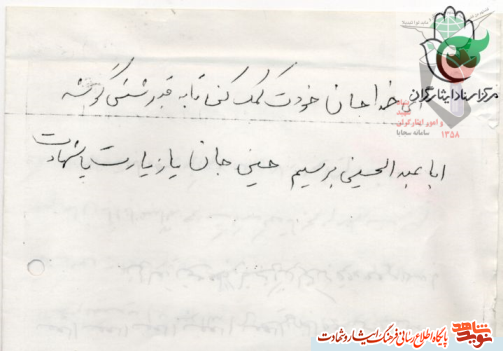 مرکز اسناد ایثارگران
و امور ایثارگران
سامانه سجایا
۱۳۵۸
خدا جان خودت کمک کن تا به قبر شش گوشه
ابا عبد الحسین برسیم حسین جان یا زیارت یا شهادت
نوید شاهد
پایگاه اطلاع رسانی فرهنگ ایثار و شهادت